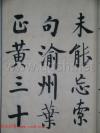 未能忘索
句渝州葉
正黄三十